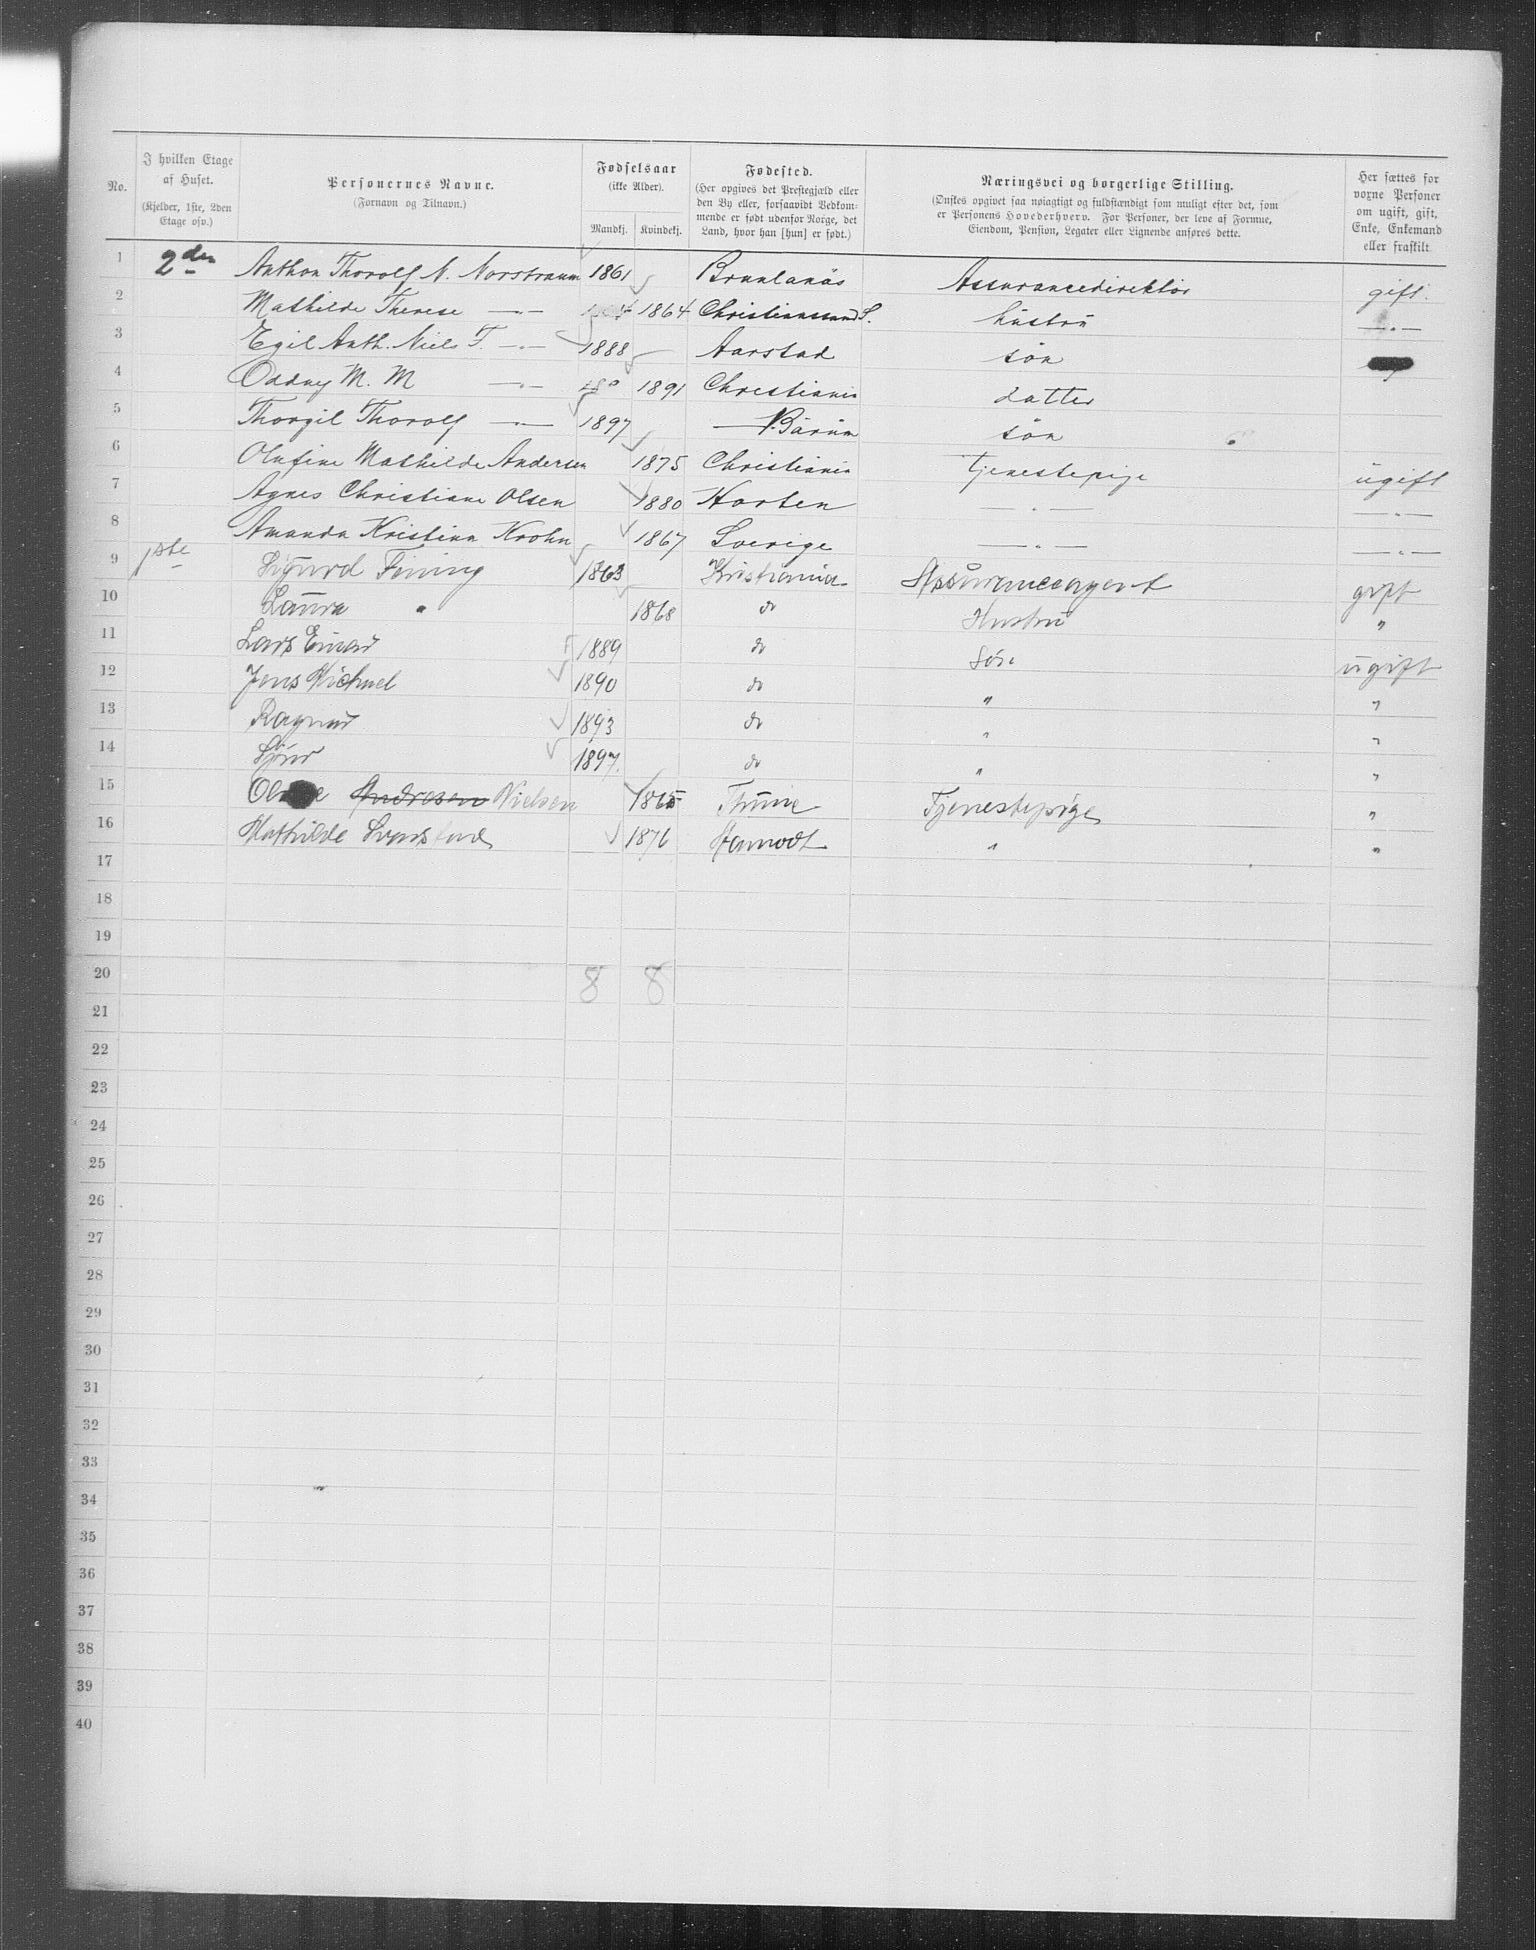 No.
I hvilken Etage af Huset.
(Kjelder, 1ste, 2den Etage osv.)
Personernes Navne.
(Fornavn og Tilnavn.)
Fødselsaar
(ikke Alder).
Mandkj. Kvindekj.
Fødested.
(Her opgives det Prestegjæld eller den By eller, forsaavidt Vedkommende er født udenfor Norge, det Land, hvor han [hun] er født.)
Næringsvei og borgerlige Stilling.
(Ønskes opgivet saa nøiagtigt og fuldstændigt som muligt efter det, som er Personens Hovederhverv. For Personer, der leve af Formue, Eiendom, Pension, Legater eller Lignende anføres dette.
Her sættes for voxne Personer om ugift, gift, Enke, Enkemand eller fraskilt
1 2den Anthon Thorolf N. Norstraum 1861 Brunlanäs Assurancedirektör gift.
2 Mathilde Therese —"— 1864 Christianssand S. hustru —"—
3 Egil Anth. Niels T. —"— 1888 Aarstad sön
4 Oddny M. M —"— 1891 Christiania datter
5 Thorgil Thorolf —"— 1897 V. Bärum sön
6 Olufine Mathilde Andersen 1875 Christiania Tjenestepige ugift
7 Agnes Christiane Olsen 1880 Horten —"— —"—
8 Amanda Kristina Krohn 1867 Sverige —"— —"—
9 1ste Sigurd Finning 1863 Kristiania Assuranceagent gift
10 Laura " 1868 do Hustru "
11 Lars Einar 1889 do Søn ugift
12 Jens Michael 1890 do " "
13 Ragnar 1893 do " "
14 1897. do " "
15 Andresen Nielsen 1865 Tjenestepige "
16 Mathilde 1876 " "
17
18
19
20 8 8
21
22
23
24
25
26
27
28
29
30
31
32
33
34
35
36
37
38
39
40